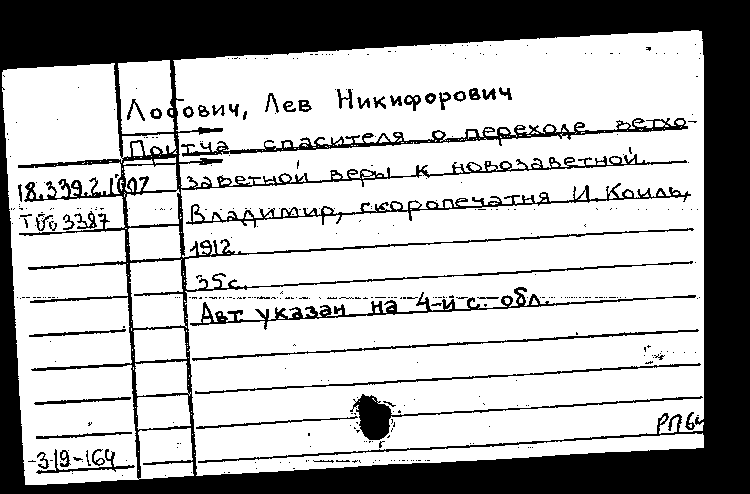 Лобович, Лев Никифорович
Притча спасителя о переходе ветхо-
18.339.2.1007 заветной веры к новозаветной.
Владимир, скоропечатня И. Коиль,
1912.
35с.
Авт. указан на 4-й с. обл.
319-164